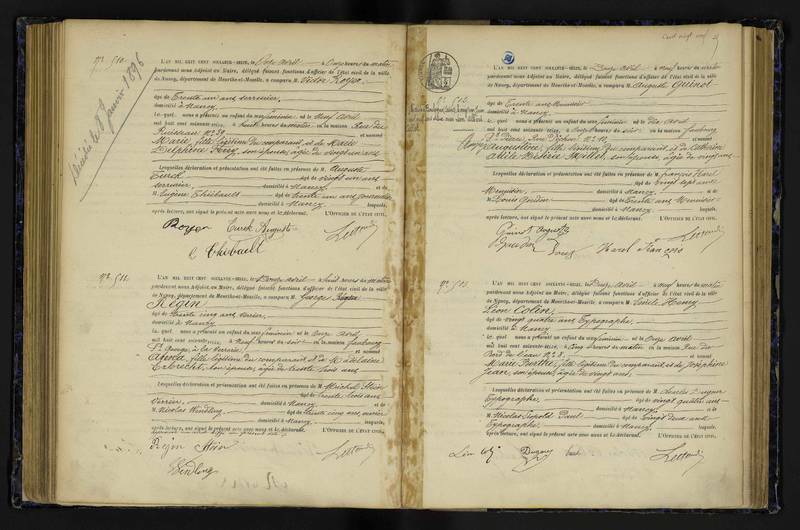 N° 510.
L'AN MIL HUIT CENT SOIXANTE-SEIZE, le Onze Avril à Onze heures du matin
pardevant nous Adjoint au Maire, délégué faisant fonctions d'officier de l'état civil de la ville
de Nancy, département de Meurthe-et-Moselle, a comparu M. Victor Royer
âgé de Trente un ans serrurier,
domicilié à Nancy
le quel nous a présenté un enfant du sexe féminin né le Neuf Avril
mil huit cent soixante-seize, à huit heures du matin en la maison Rue du
Ruisseau N° 39 et nommé
Marie, fille légitime du comparant et de Marie
Delphine son épouse, âgée de vingt un ans
Lesquelles déclaration et présentation ont été faites en présence de M. Auguste
Turck âgé de vingt un ans
serrurier, domicilié à Nancy et de
M. Eugène Thiébault âgé de trente un ans
domicilié à Nancy lesquels,
après lecture, ont signé le présent acte avec nous et le déclarant. L'OFFICIER DE L'ÉTAT CIVIL.
Royer Turck Auguste
E Thiébault
N° 511.
L'AN MIL HUIT CENT SOIXANTE-SEIZE, le Douze avril à huit heures du matin
pardevant nous Adjoint au Maire, délégué faisant fonctions d'officier de l'état civil de la ville
de Nancy, département de Meurthe-et-Moselle, a comparu M. Georges
Régin
âgé de trente cinq ans verrier,
domicilié à Nancy
le quel nous a présenté un enfant du sexe féminin né le Onze Avril
mil huit cent soixante-seize, à Neuf heures du soir en la maison faubourg
St Georges, à la verrerie et nommé
fille légitime du comparant et de Madelaine
son épouse, âgée de trente trois ans
Lesquelles déclaration et présentation ont été faites en présence de M. Michel
âgé de trente trois ans
Verrier, domicilié à Nancy et de
M. Nicolas Windling âgé de trente cinq ans, verrier
domicilié à Nancy lesquels,
après lecture, ont signé le présent acte avec nous et le déclarant. L'OFFICIER DE L'ÉTAT CIVIL.
Windling
L'AN MIL HUIT CENT SOIXANTE-SEIZE, le Douze Avril à Neuf heures du matin
pardevant nous Adjoint au Maire, délégué faisant fonctions d'officier de l'état civil de la ville
de Nancy, département de Meurthe-et-Moselle, a comparu M. Auguste Guinot
âgé de Trente ans Menuisier
domicilié à Nancy
le quel nous a présenté un enfant du sexe féminin né le Dix Avril
mil huit cent soixante-seize, à Onze heures du soir en la maison faubourg
St Pierre, et nommé
Augustine, fille légitime du comparant et de Catherine
son épouse, âgée de vingt ans
Lesquelles déclaration et présentation ont été faites en présence de M. François Harel
âgé de vingt sept ans
Menuisier, domicilié à Nancy et de
M. Louis âgé de trente ans Menuisier
domicilié à Nancy lesquels,
après lecture, ont signé le présent acte avec nous et le déclarant. L'OFFICIER DE L'ÉTAT CIVIL.
Guinot Auguste
Harel François
N° 513.
L'AN MIL HUIT CENT SOIXANTE-SEIZE, le Douze Avril à Neuf heures du matin
pardevant nous Adjoint au Maire, délégué faisant fonctions d'officier de l'état civil de la ville
de Nancy, département de Meurthe-et-Moselle, a comparu M. Henry
Léon Colin
âgé de vingt quatre ans Typographe,
domicilié à Nancy
le quel nous a présenté un enfant du sexe féminin né le Onze avril
mil huit cent soixante-seize, à Cinq heures du matin en la maison Rue du
Bord de l'eau N° 8, et nommé
Marie Berthe, fille légitime du comparant et de Joséphine
son épouse, âgée de vingt ans
Lesquelles déclaration et présentation ont été faites en présence de M. Charles
Typographe, âgé de vingt quatre ans
domicilié à Nancy et de
M. Nicolas Léopold âgé de vingt deux ans
Typographe, domicilié à Nancy lesquels,
après lecture, ont signé le présent acte avec nous et le déclarant. L'OFFICIER DE L'ÉTAT CIVIL.